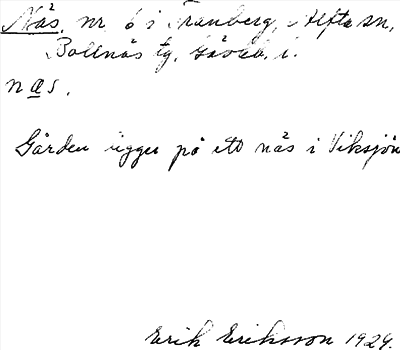 Näs, nr 6 i Tranberg, Alfta sn,
Bollnäs tg, Gävleb. l.
næs.
Gården ligger på ett näs i Viksjön
Erik Eriksson 1924.